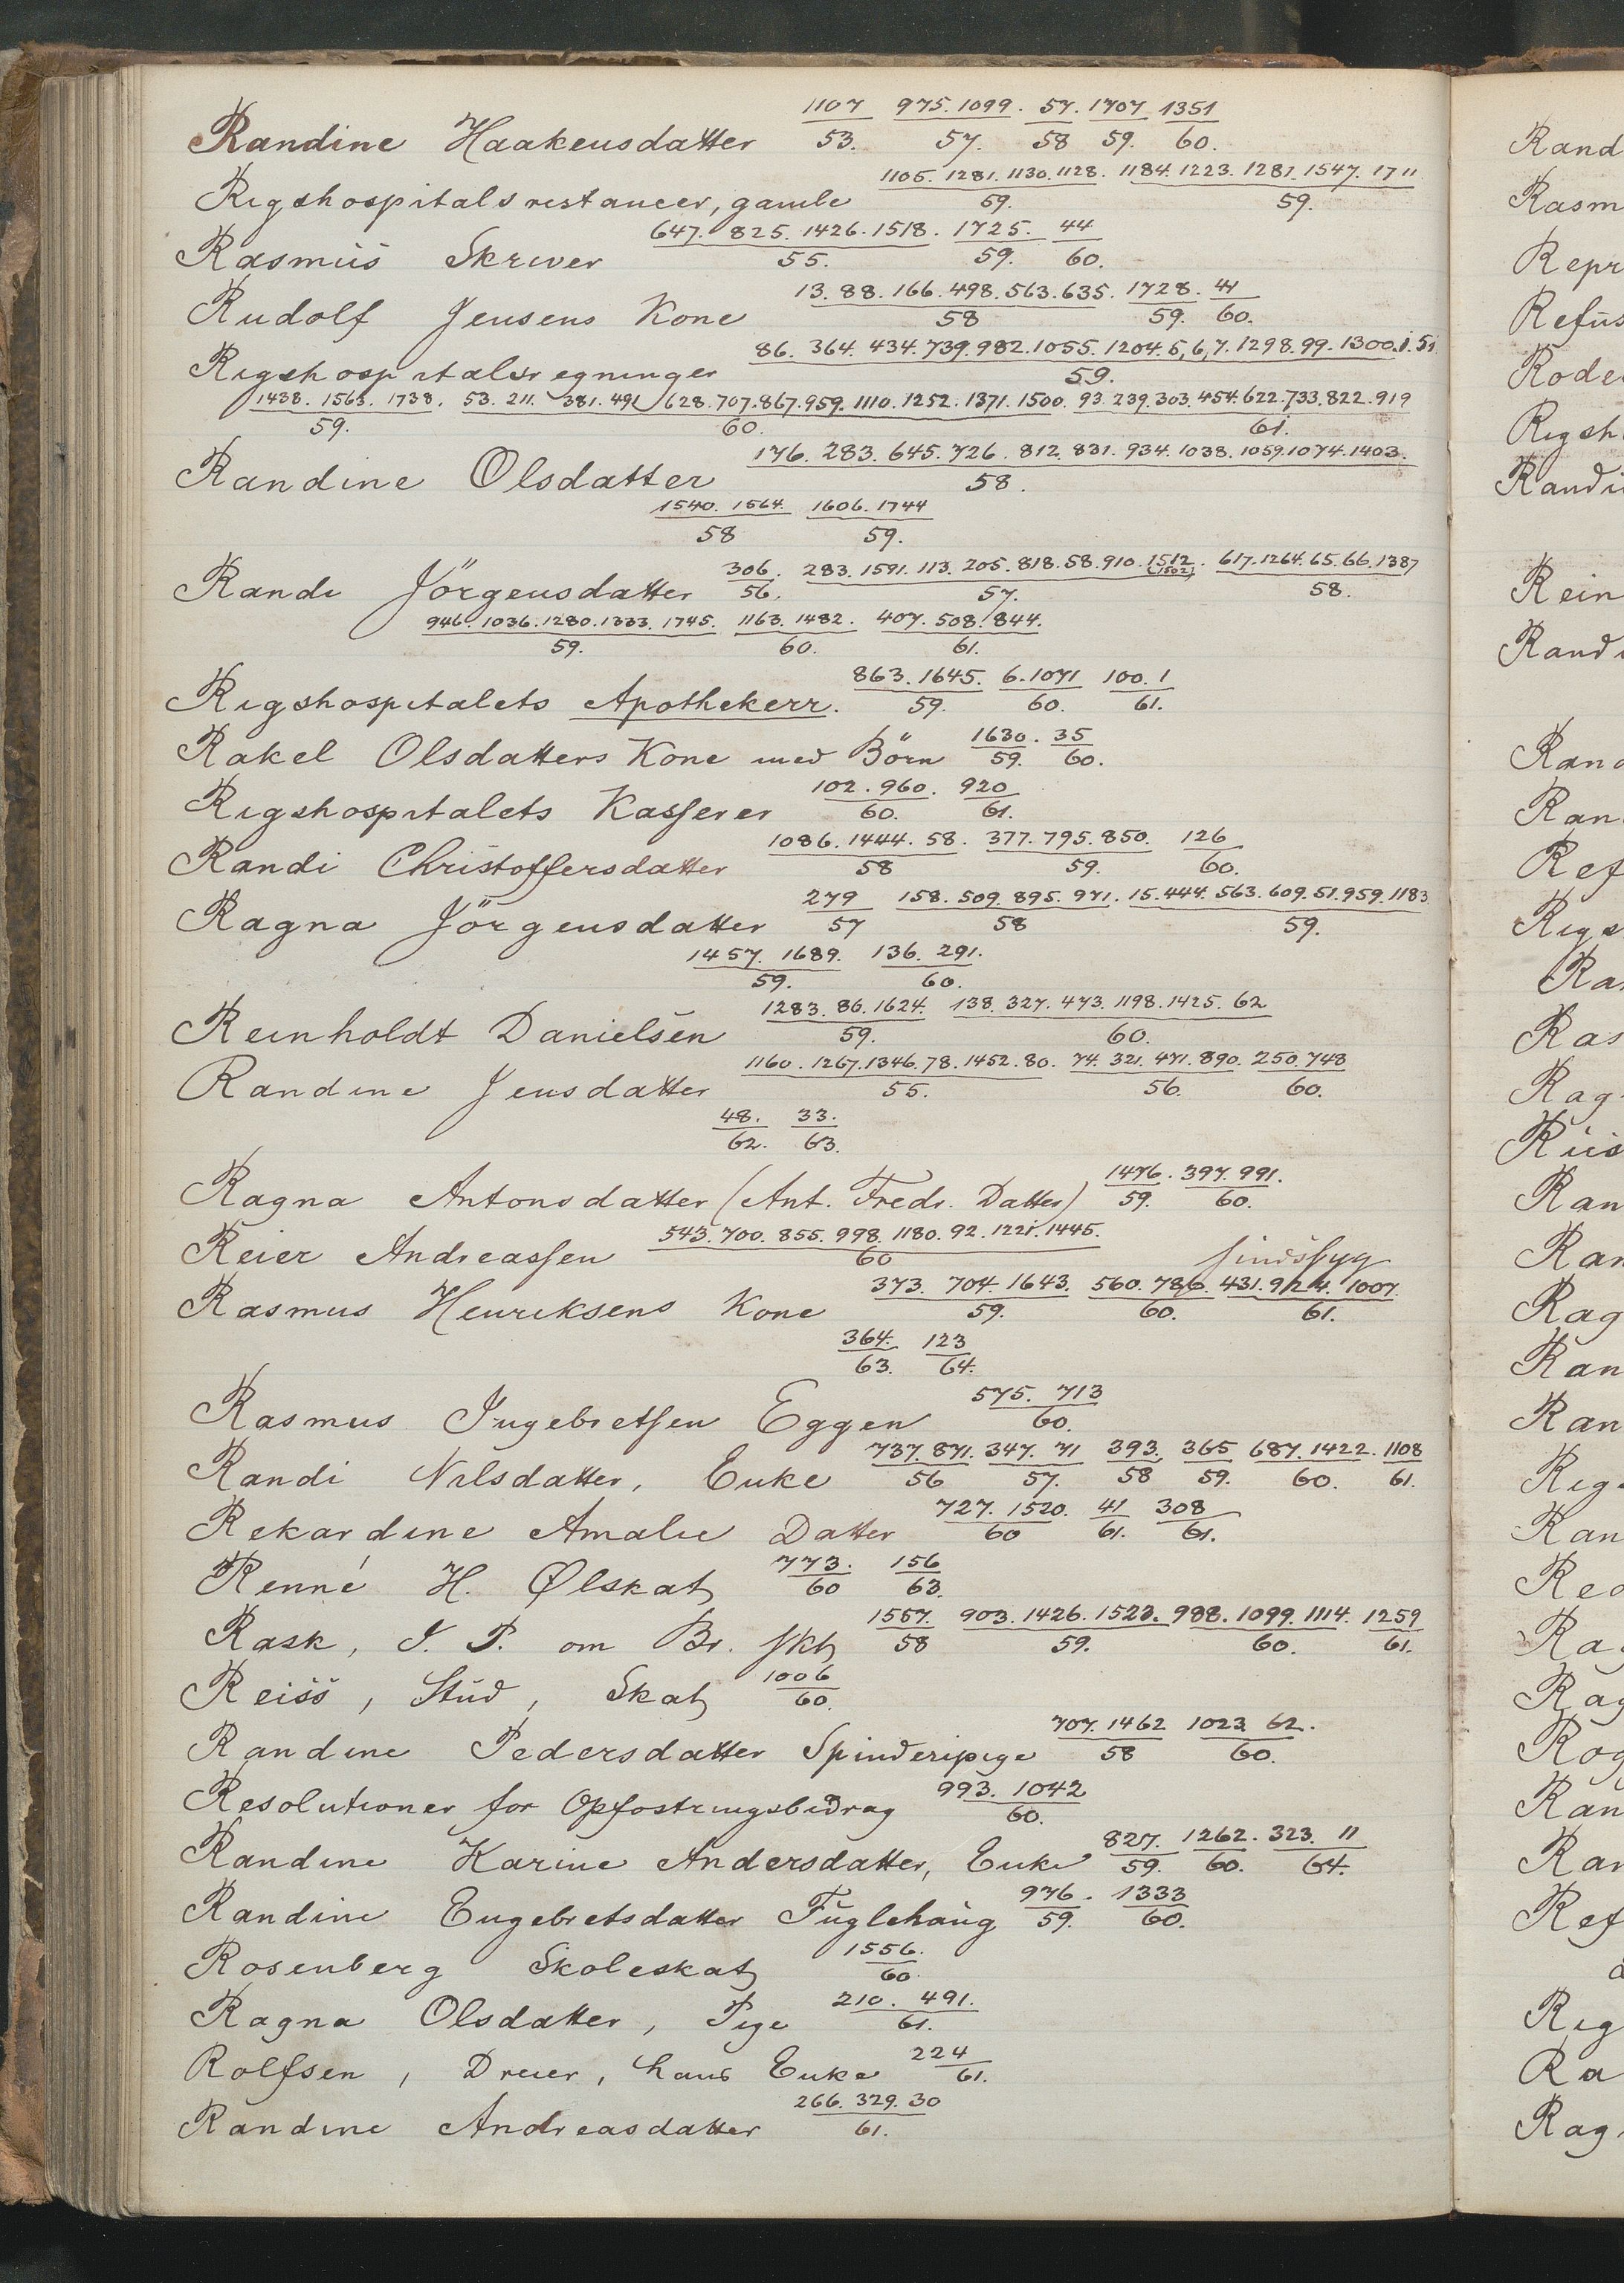 1107 975. 1099. 57. 1707 1351
Randine Haakensdatter 53. 57. 58 59. 60.
1105. 1281. 1130. 1128. 1184. 1223. 1281. 1547. 1711
Rigshospitalsrestancer, gamle 59. 59.
647. 825. 1426. 1518. 1725. 44
Rasmus Skriver 55. 59. 60.
13. 88. 166. 498. 563. 635. 1728. 41
Rudolf Jensens Kone 58 59. 60.
86. 364. 434. 739. 982. 1055. 1204. 5, 6, 7. 1298. 99. 1300. 1. 51
Rigshospitalsregninger 59.
1438. 1563. 1738. 53. 211. 381. 491 628. 707. 867. 959. 1110. 1252. 1371. 1500. 93. 239. 303. 454. 622. 733. 822. 919
59. 60. 61.
176. 283. 645. 726. 812. 831. 934. 1038. 1059. 1074. 1403.
Randine Olsdatter 58.
1540. 1564. 1606. 1744
58 59.
306. 283. 1591. 113. 205. 818. 58. 910. 1512 (1502). 617. 1264. 65. 66. 1387
Randi Jörgensdatter 56. 57. 58.
946. 1036. 1280. 1333. 1745. 1163. 1482. 407. 508. 844.
59. 60. 61.
863. 1645. 6. 1071 100. 1
Rigshospitalets Apothekerr. 59. 60. 61.
1630. 35
Rakel Olsdatters Kone med Börn 59. 60.
102. 960. 920
Rigshospitalets Kasserer 60. 61.
1086. 1444. 58. 377. 795. 850. 126
Randi Christoffersdatter 58 59. 60.
279 158. 509. 895. 971. 15. 444. 563. 609. 51. 959. 1183
Ragna Jörgensdatter 57 58 59.
1457. 1689. 136. 291.
59. 60.
1283. 86. 1624. 138. 327. 473. 1198. 1425. 62
Reinholdt Danielsen 59. 60.
1160. 1267. 1346. 78. 1452. 80. 74. 321. 471. 890. 250. 748
Randine Jensdatter 55. 56. 60.
48. 33.
62. 63.
1476. 397. 991.
Ragna Antonsdatter (Ant. Fredr. Datter) 59. 60.
543. 700. 855. 998. 1180. 92. 1221. 1445.
Reier Andreassen 60 sindssyg
373. 704. 1643. 560. 786. 431. 924. 1007.
Rasmus Henriksens Kone 59. 60. 61.
364. 123
63. 64.
575. 713
Rasmus Ingebretsen Eggen 60.
737. 871. 347. 71 393. 365 687. 1422. 1108
Randi Nilsdatter, Enke 56 57. 58 59. 60. 61.
727. 1520. 41 308
Rekardine Amalie Datter 60 61. 61.
773. 156
Renné H. Ølskat 60 63.
1557. 903. 1426. 1523. 988. 1099. 1114. 1259
Rask, J. P. om Br. skt 58 59. 60. 61.
1006
Reiss, Stud, Skat 60.
707. 1462 1023 62.
Randine Pedersdatter Spinderipige 58 60.
993. 1042
Resolutioner for Opfostringsbidrag 60.
827. 1262. 323. 11
Randine Karine Andersdatter, Enke 59. 60. 64.
976. 1333
Randine Engebretsdatter Fuglehaug 59. 60.
1556.
Rosenberg Skoleskat 60
210. 491.
Ragna Olsdatter, Pige 61.
224
Rolfsen, Dreier, hans Enke 61.
266. 329. 30
Randine Andreasdatter 61.
Rand
Rasm
Repr
Refus
Rode
Rigsh
Randi
Rein
Randi
Rand
Ran
Ref
Rigs
Ra
Ras
Rag
Rus
Ran
Ran
Rag
Ran
Ran
Rig
Ran
Re
Ra
Rag
Rog
Ran
Ran
Ref
Rig
Ra
Rag